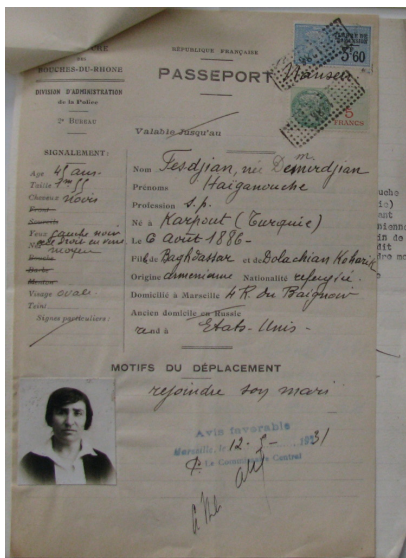 RÉPUBLIQUE FRANÇAISE
BOUCHES-DU-RHONE
PASSEPORT Nansen
3F60
5
FRANCS
DIVISION D'ADMINISTRATION
de la Police
2e BUREAU
Valable Jusqu'au
SIGNALEMENT:
Age 45 ans
Taille 1m55
Cheveux noirs
Front
Sourcils
Yeux
Nez
moyen
Bouche
Barbe
Menton
Teint
Visage ovale
Signes particuliers:
Nom Fesdjian, née Demirdjian
Prénoms Haïganouche
Profession s.p.
Né à Karpout (Turquie)
Le 6 août 1886-
Fille de Baghdassar et de Dolachian Koharik
Origine arménienne Nationalité réfugiée
Domicilié à Marseille 4 R. du Baignoir
Ancien domicile en Russie
rend à Etats-Unis-
MOTIFS DU DÉPLACEMENT
rejoindre son mari
Avis favorable
Marseille, le 12-5-1931
Le Commissaire Central